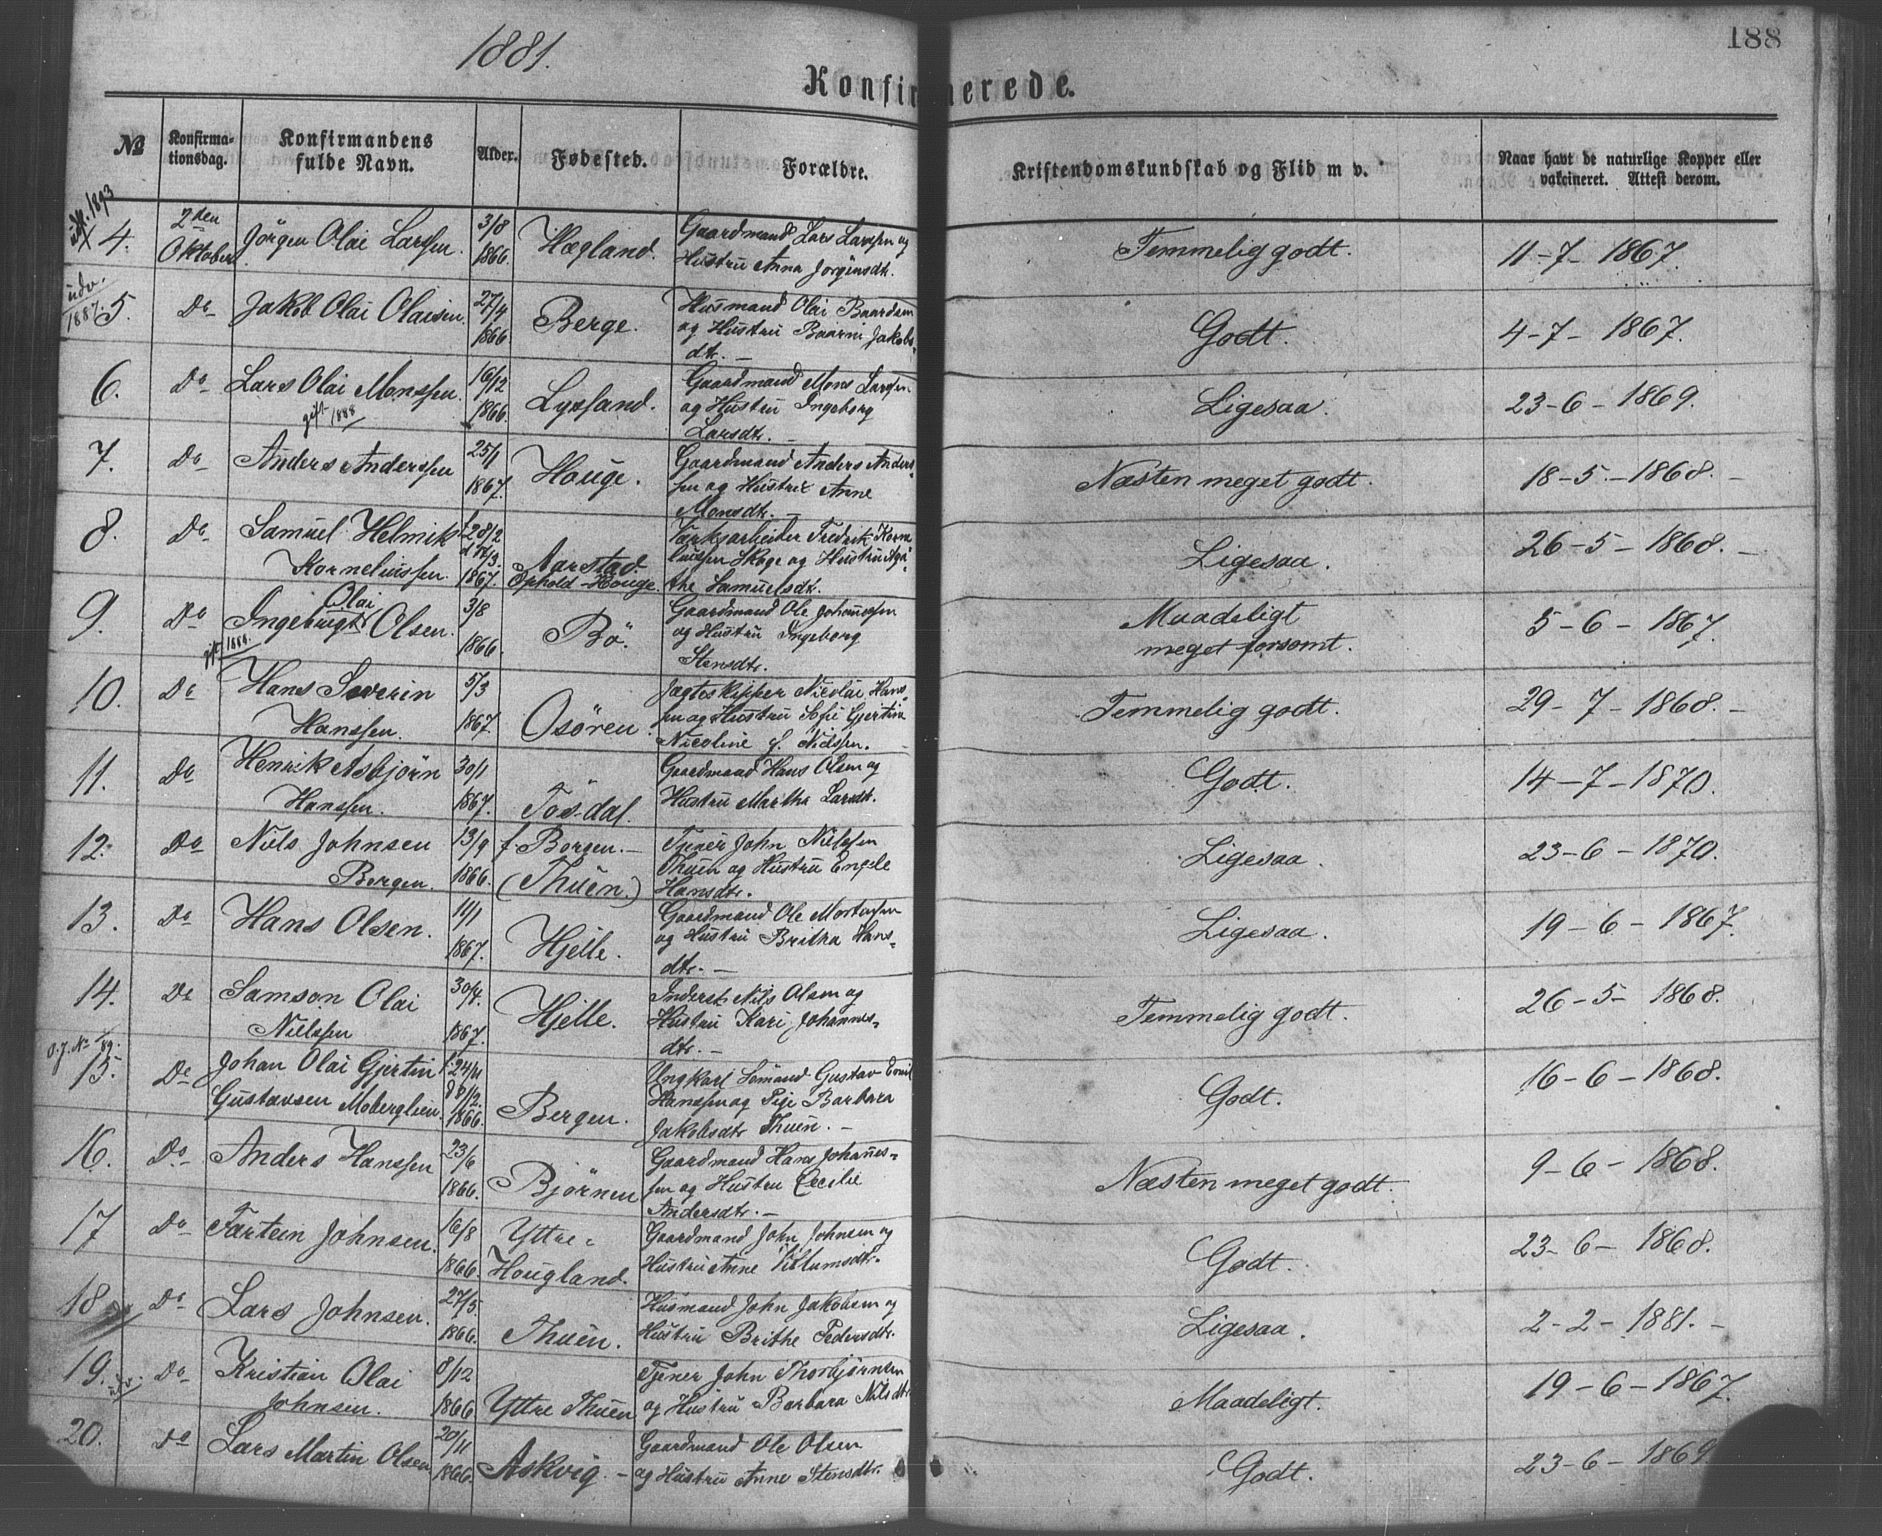 1881.
188
Konfirmerede.
№
Konfirma-
tionsdag.
Konfirmandens
fulde Navn.
Alder.
Fødested.
Forældre.
Kristendomskundskab og Flid m v.
Naar havt de naturlige Kopper eller
vakcineret. Attest derom.
udv. 1893
4.
2den
Oktober
Jörgen Olai Larssen.
3/8
1866.
Hægland.
Gaardmand Lars Larssen og
Hustru Anna Jorgensdtr.
Temmelig godt.
11-7- 1867.
udv.
1887.
5.
Do
Jakob Olai Olaisen.
27/4
1866
Berge.
Husmand Olai Baardsen
og Hustru Baarni Jakobs-
dtr. —
Godt.
4-7- 1867.
6.
Do
Lars Olai Monssen.
16/12
1866.
Lysesand.
Gaardmand Mons Larssen
og Hustru Ingeborg
Larsdtr. —
Ligesaa.
23-6- 1869.
gift 1888
7.
Do
Anders Anderssen
25/1
1867.
Houge.
Gaardmand Anders Anders-
sen og Hustru Anne
Monsdtr. —
Næsten meget godt.
18-5.-1868. —
8.
Do
Samuel Helmik
Kornelinssen.
f 28/2
1867.
Aarstad.
Ophold Houge.
Værksarbeider Fredrik Korne
liussen Skoge og Hustru Aga-
the Samuelsdtr.
Ligesaa.
26-5- 1868. —
9.
Do
Olai
Ingebrigt Olsen.
3/8
1866.
Bö.
Gaardmand Ole Johannessen
og Hustru Ingeborg
Stensdtr.
Maadeligt
meget forsømt.
5-6- 1867.
gift 1888.
10.
Do
Hans Severin
Hanssen.
5/3
1867.
Osören.
Jægteskipper Nicolai Hans-
sen og Hustru Sofie Gjertine
Nicoline f. Nielssen. —
Temmelig godt.
29- 7- 1868. —
11.
Do
Henrik Asbjörn
Hanssen.
30/1
1867.
Tösdal.
Gaardmand Hans Olsen og
Hustru Martha Larsdtr.
Godt.
14-7- 1870.
12.
Do
Nils Johnsen
Bergen.
13/9
1866.
f. Bergen. —
(Thuen.)
Tjener John Nielssen
Thuen og Hustru Engele
Hansdtr.
Ligesaa.
23-6- 1870.
13.
Do
Hans Olsen.
11/1
1867.
Hjelle.
Gaardmand Ole Mortensen
og Hustru Britha Hans-
dtr. —
Ligesaa.
19-6- 1867.
14.
Do
Samson Olai
Nielssen
30/4.
1867.
Hjelle.
Inderst Nils Olsen og
Hustru Kari Johannes-
dtr. —
Temmelig godt.
26-5- 1868.
O.J. No /89.
15.
Do
Johan Olai Gjertin
Gustavsen Moberglien.
f. 24/11
8/12.
1866.
Bergen.
Ungkarl Sömand Gustav Emil
Hanssen og Pige Barbara
Jakobsdtr Thuen. —
Godt.
16-6- 1868.
16.
Do
Anders Hanssen
23/6
1866.
Björnen
Gaardmand Hans Johannes-
sen og Hustru Cecilie
Andersdtr. —
Næsten meget godt.
9-6- 1868.
17
Do
Farteen Johnsen.
16/8
1866.
Yttre-
Hougland.
Gaardmand John Johnsen og
Hustru Anne Villumsdtr.
Godt.
23-6- 1868.
18
Do
Lars Johnsen.
27/5.
1866.
Thuen.
Husmand John Jakobsen og
Hustru Brithe Pedersdtr.
Ligesaa.
2-2- 1881. —
19.
udv.
Do
Kristian Olai
Johnsen.
8/12
1866
Yttre Thuen
Tjener John Thorbjörnsen
og Hustru Barbara Nilsdtr
Maadeligt.
19-6-1867.
20.
Do
Lars Martin Olsen
20/11
1866.
Askvig. —
Gaardmand Ole Olsen
og Hustru Anne Stensdtr.
Godt.
23-6- 1869